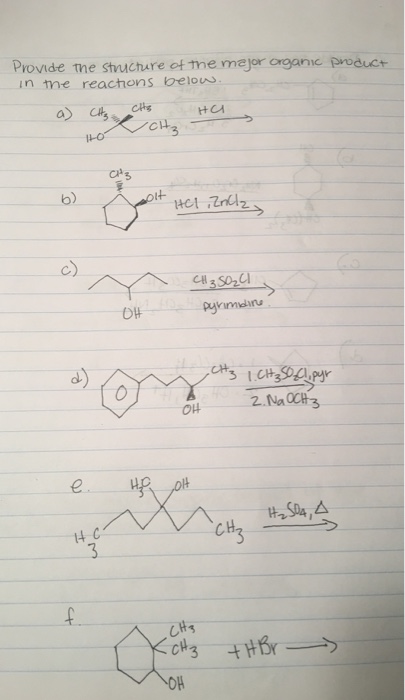 Provide the structure of the major organic product
in the reactions below.
a) CH3 CH3 HCl
HO CH3
CH3
b) OH HCl, ZnCl2
c) CH3SO2Cl
OH pyrimidine
d) CH3 1. CH3SO2Cl, pyr
OH 2. NaOCH3
e. H3C OH
H2SO4, Δ
H3C CH3
f. CH3
CH3 + HBr
OH